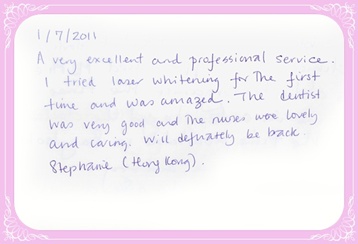 1/7/2011
A very excellent and professional service.
I tried laser whitening for The first
time and was amazed. The dentist
was very good and The nurses were lovely
and caring. Will definately be back.
Stephanie (Hong Kong).